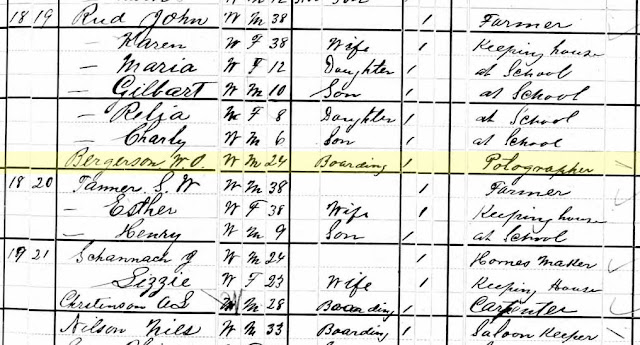 Son
18 19 Rud John W M 38 1 Farmer
— Karen W F 38 Wife 1 Keeping house
— Maria W F 12 Daughter 1 at School
— Gilbart W M 10 Son 1 at School
— Relia W F 8 Daughter 1 at School
Charly W M 6 Son 1 at School
Bergerson W.O. W M 24 Boarding 1 Potographer
18 20 Tanner S. W W M 38 1 Farmer
— Esther W F 38 Wife 1 Keeping house
— Henry W M 9 Son 1 at School
19 21 Schannach W M 24 1 Homes Maker
— Lizzie W F 23 Wife 1 Keeping House
Christenson A S W M 28 Boarding 1 Carpenter
Nilson Niels W M 33 Boarding 1 Saloon Keeper